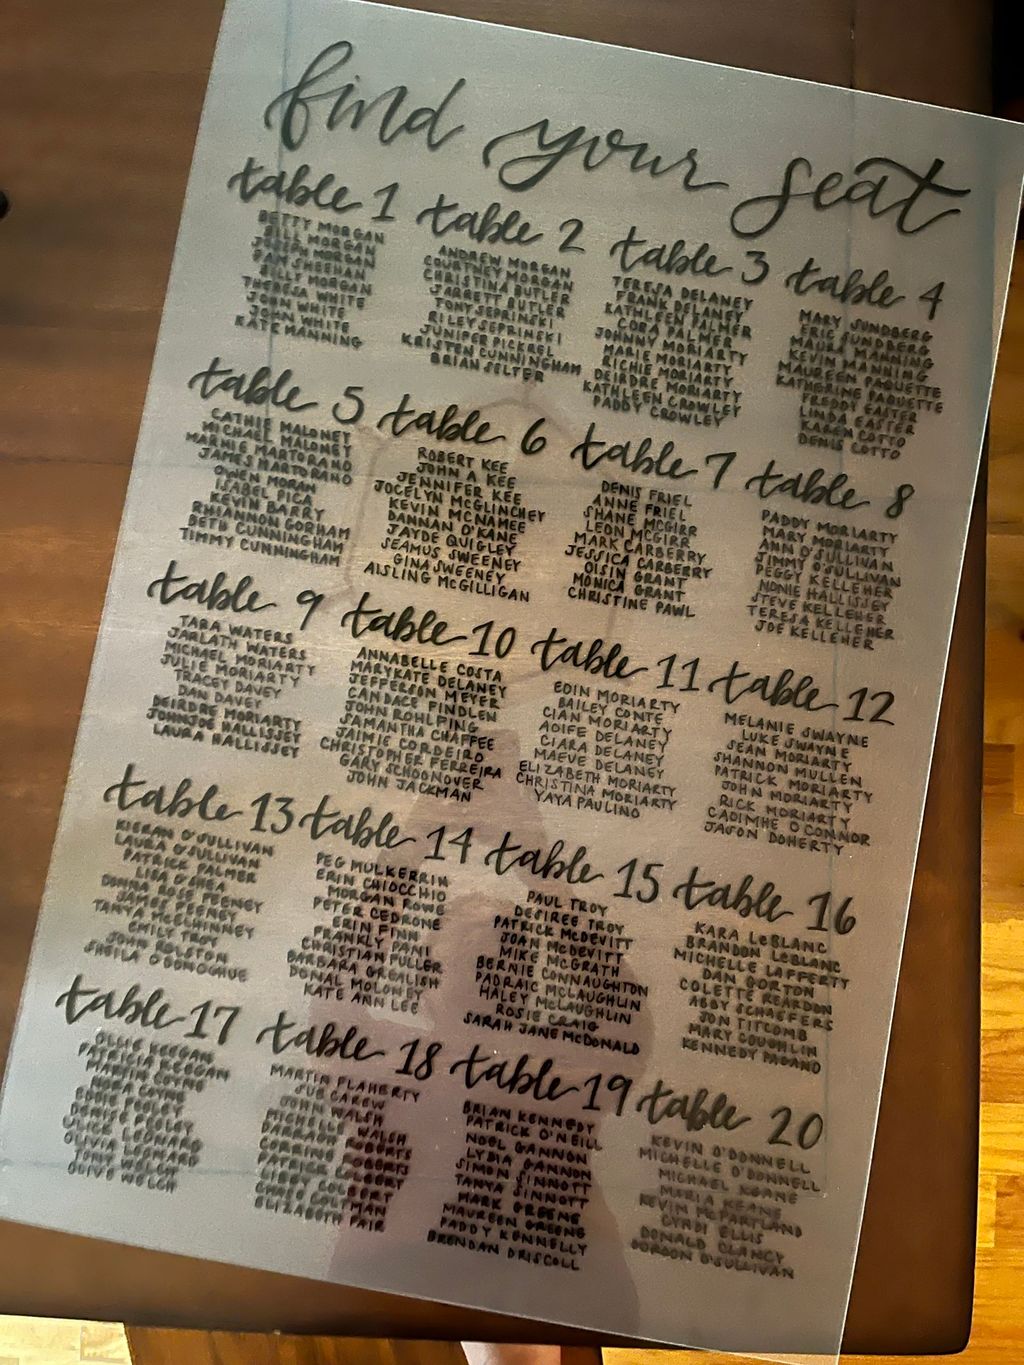 find your seat
table 1
BETTY MORGAN
BILL MORGAN
JOSEPH MORGAN
PAM SHEEHAN
BILLY MORGAN
THERESA WHITE
JOHN WHITE
KATE MANNING
table 2
ANDREW MORGAN
COURTNEY MORGAN
CHRISTINA BUTLER
JARRETT BUTLER
TONY SEPRINSKI
RILEY SEPRINSKI
JUNIPER PICKREL
KRISTEN CUNNINGHAM
BRIAN SELTER
table 3
TERESA DELANEY
FRANK DELANEY
KATHLEEN PALMER
CORA PALMER
JOHNNY MORIARTY
MARIE MORIARTY
RICHIE MORIARTY
DEIRDRE MORIARTY
KATHLEEN CROWLEY
PADDY CROWLEY
table 4
MARY SUNDBERG
ERIC SUNDBERG
MAURA MANNING
KEVIN MANNING
MAUREEN PAQUETTE
KATHERINE PAQUETTE
FREDDY EASTER
LINDA EASTER
KAREN COTTO
DENIS COTTO
table 5
CATHIE MALONEY
MICHAEL MALONEY
MARNIE MARTORANO
JAMES MARTORANO
OWEN MORAN
ISABEL PICA
KEVIN BARRY
RHIANNON GORHAM
BETH CUNNINGHAM
TIMMY CUNNINGHAM
table 6
ROBERT KEE
JOHN A KEE
JENNIFER KEE
JOCELYN McGLINCHEY
KEVIN McNAMEE
DANNAN O'KANE
JAYDE QUIGLEY
SEAMUS SWEENEY
GINA SWEENEY
AISLING McGILLIGAN
table 7
DENIS FRIEL
ANNE FRIEL
SHANE McGIRR
LEON McGIRR
MARK CARBERRY
JESSICA CARBERRY
OISIN GRANT
MONICA GRANT
CHRISTINE PAWL
table 8
PADDY MORIARTY
MARY MORIARTY
ANN O'SULLIVAN
JIMMY O'SULLIVAN
PEGGY KELLEHER
NONIE HALLISSEY
STEVE KELLEHER
TERESA KELLEHER
JOE KELLEHER
table 9
TARA WATERS
JARLATH WATERS
MICHAEL MORIARTY
JULIE MORIARTY
TRACEY DAVEY
DAN DAVEY
DEIRDRE MORIARTY
JOHNJOE HALLISSEY
LAURA HALLISSEY
table 10
ANNABELLE COSTA
MARYKATE DELANEY
JEFFERSON MEYER
CANDACE PINDLEN
JOHN ROHLPING
SAMANTHA CHAFFEE
JAIMIE CORDEIRO
CHRISTOPHER FERREIRA
GARY SCHOONOVER
JOHN JACKMAN
table 11
EOIN MORIARTY
BAILEY CONTE
CIAN MORIARTY
AOIFE DELANEY
CIARA DELANEY
MAEVE DELANEY
ELIZABETH MORIARTY
CHRISTINA MORIARTY
YAYA PAULINO
table 12
MELANIE SWAYNE
LUKE SWAYNE
SEAN MORIARTY
SHANNON MULLEN
PATRICK MORIARTY
JOHN MORIARTY
RICK MORIARTY
CAOIMHE O'CONNOR
JASON DOHERTY
table 13
KIERAN O'SULLIVAN
LAURA O'SULLIVAN
PATRICK PALMER
LISA O'SHEA
DONNA ROSE FEENEY
JAMES FEENEY
TANYA McECHINNEY
EMILY TROY
JOHN ROLSTON
SHEILA O'DONOGHUE
table 14
PEG MULKERRIN
ERIN CHIOCCHIO
MORGAN ROWE
PETER CEDRONE
ERIN FINN
FRANKLY PANI
CHRISTIAN FULLER
BARBARA GREALISH
DONAL MOLONEY
KATE ANN LEE
table 15
PAUL TROY
DESIREE TROY
PATRICK McDEVITT
JOAN McDEVITT
MIKE McGRATH
BERNIE CONNAUGHTON
PADRAIC McLAUGHLIN
HALEY McLAUGHLIN
ROSIE CRAIG
SARAH JANE McDONALD
table 16
KARA LeBLANC
BRANDON LeBLANC
MICHELLE LAFFERTY
DAN GORTON
COLETTE REARDON
ABBY SCHAEFERS
JON TITCOMB
MARY COUGHLIN
KENNEDY PAGANO
table 17
OLLIE KEEGAN
PATRICIA KEEGAN
MARTIN COYNE
NORA COYNE
EDDIE
DENISE
LEONARD
OLIVIA LEONARD
TONY WELCH
OLIVE WELCH
table 18
MARTIN FLAHERTY
SUE CAREW
JOHN WALSH
MICHELLE WALSH
DARRAGH ROBERTS
CORRINE ROBERTS
PATRICK COLBERT
LIBBY COLBERT
COLTMAN
ELIZABETH FAIR
table 19
BRIAN KENNEDY
PATRICK O'NEILL
NOEL GANNON
LYDIA GANNON
SIMON SINNOTT
TANYA SINNOTT
MARK GREENE
MAUREEN GREENE
PADDY KENNELLY
BRENDAN DRISCOLL
table 20
KEVIN O'DONNELL
MICHELLE O'DONNELL
MICHAEL KEANE
MARIA KEANE
KEVIN McPARTLAND
CYNDI ELLIS
DONALD CLANCY
GORDON O'SULLIVAN